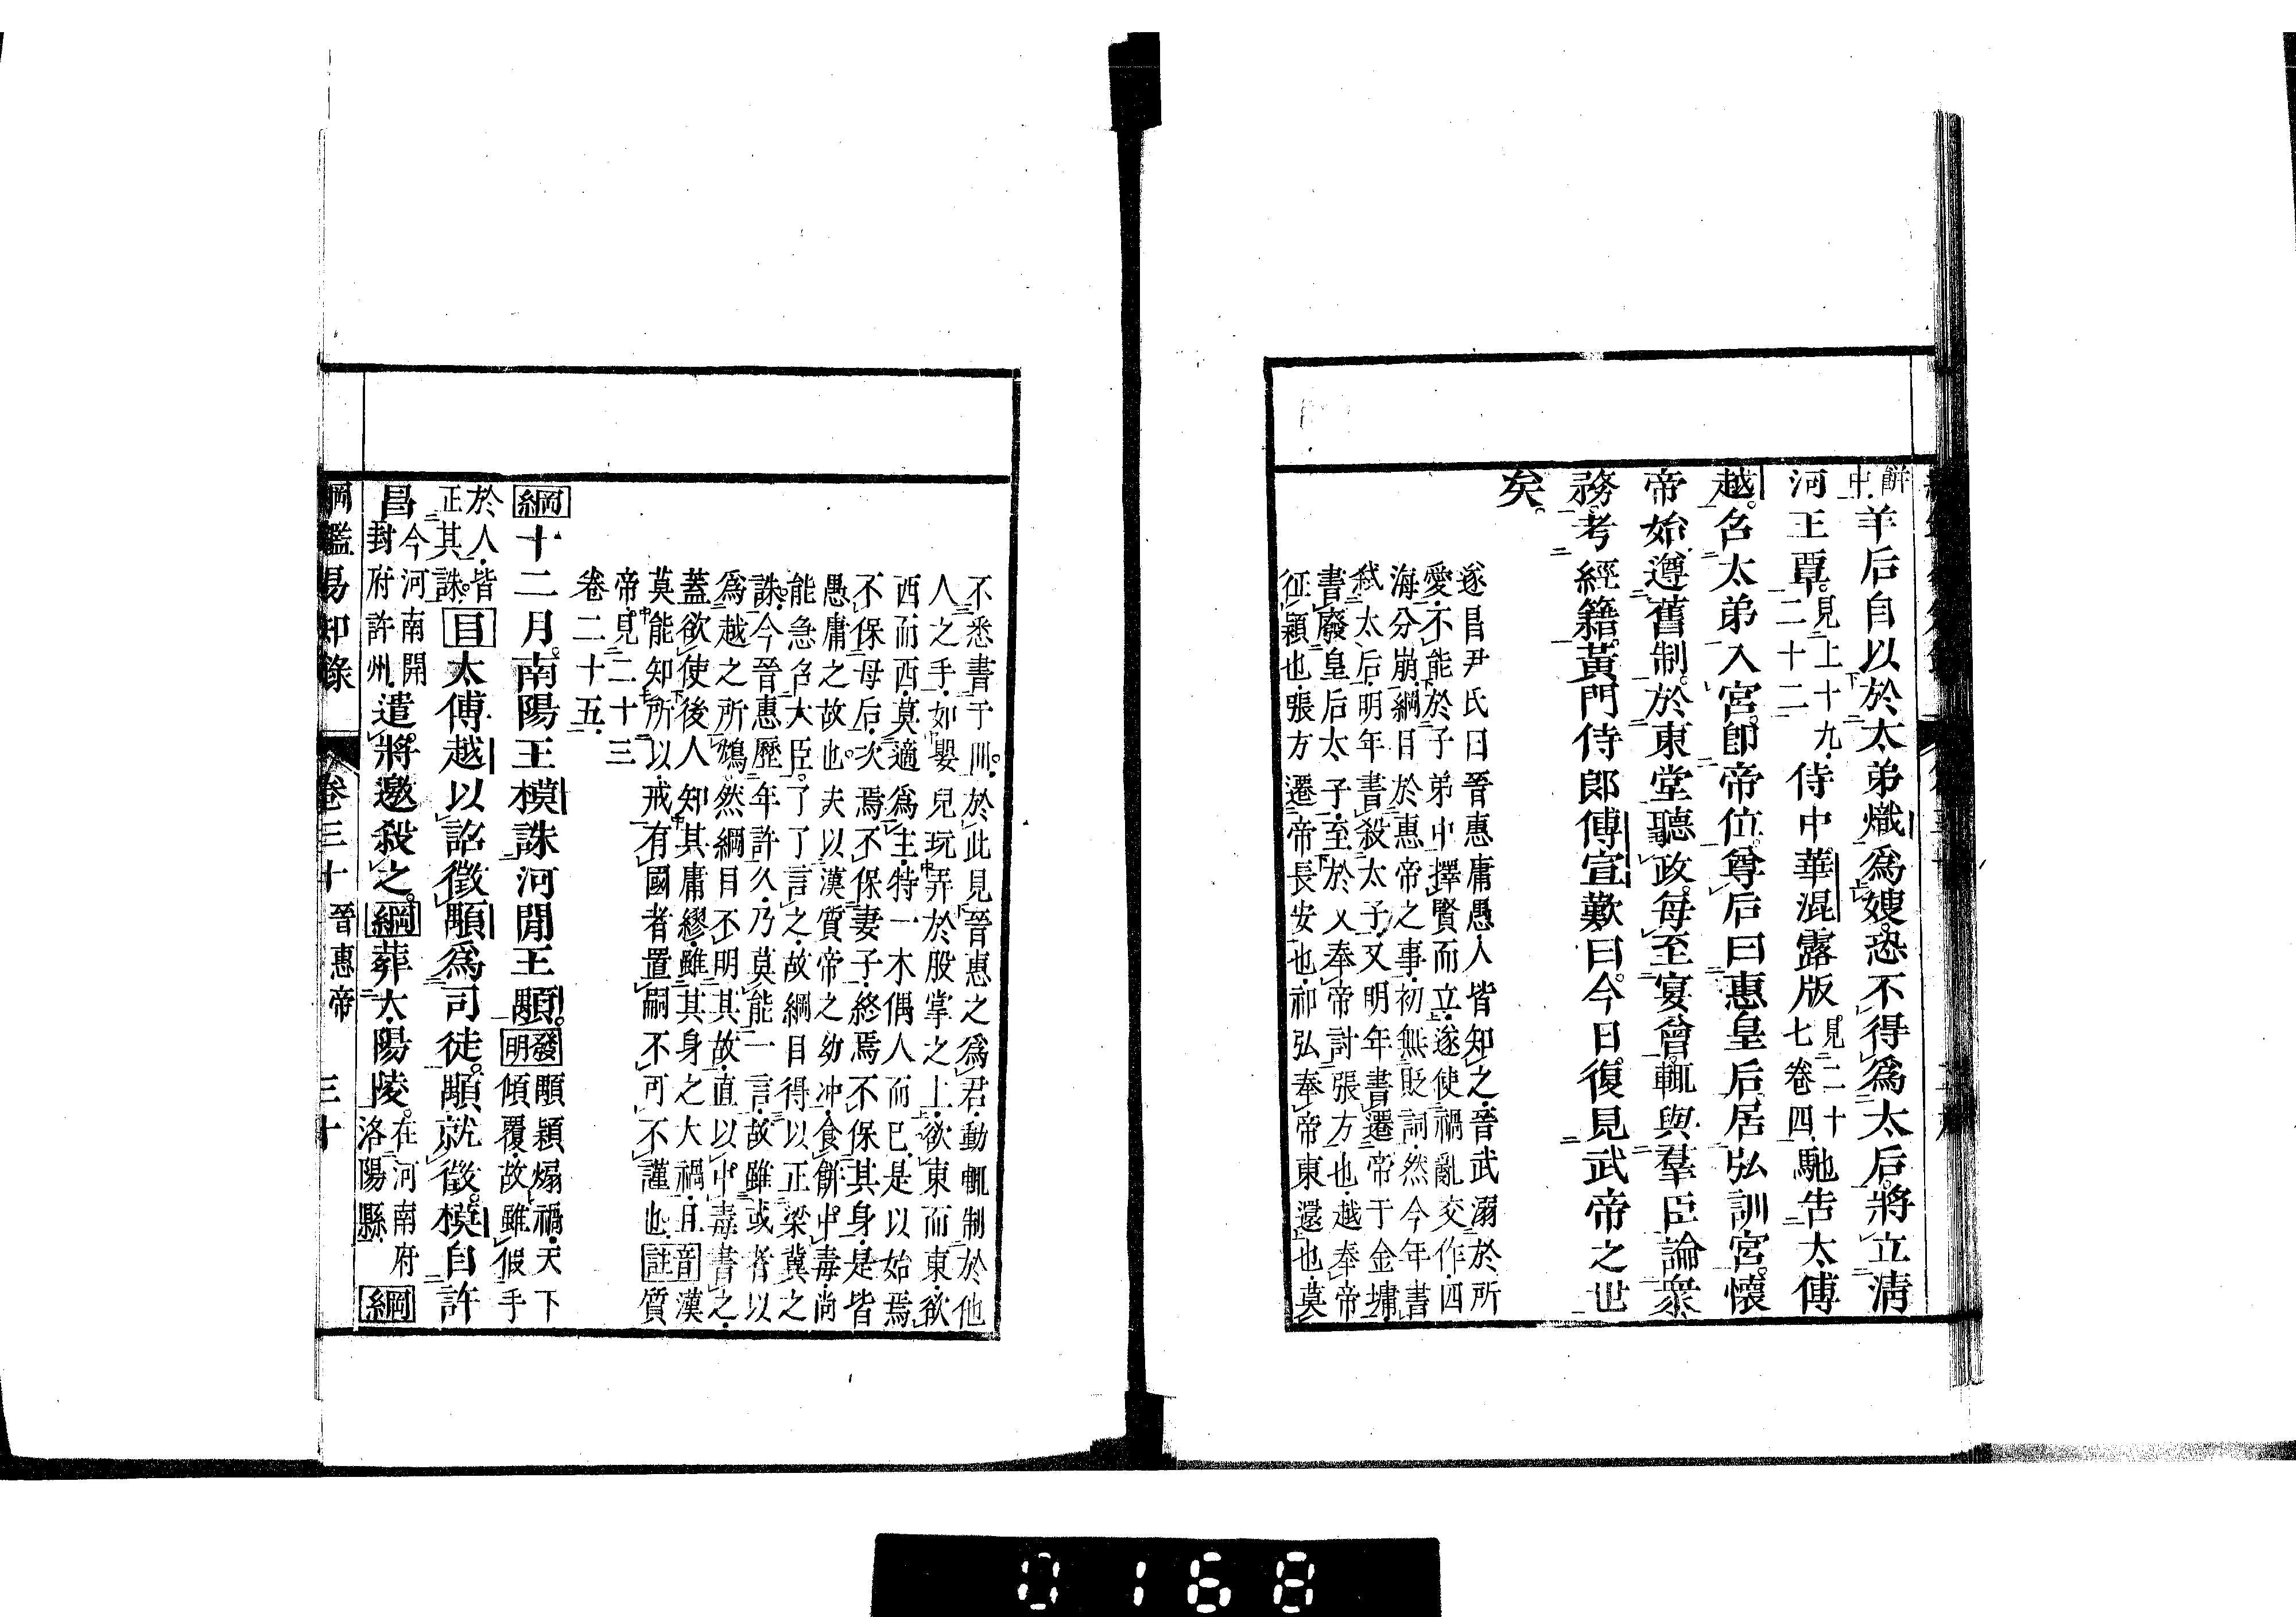 餅
中羊后自以於太弟熾爲嫂恐不得爲太后將立清
河王覃見上十九二十二侍中華混露版見二十七卷四馳告太傅
越召太弟入宮卽帝位尊后曰惠皇后居弘訓宮懷
帝始遵舊制於東堂聽政每至宴會輒與羣臣論衆
務考經籍黃門侍郎傅宣歎曰今日復見武帝之世
矣
遂昌尹氏曰晉惠庸愚人皆知之晉武溺於所
愛不能於子弟中擇賢而立遂使禍亂交作四
海分崩綱目於惠帝之事初無貶詞然今年書
弒太后明年書殺太子又明年書遷帝于金墉
書廢皇后太子至於乂奉帝討張方也越奉帝
征穎也張方遷帝長安也祁弘奉帝東還也莫
不悉書于册於此見晉惠之爲君動輒制於他
人之手如嬰兒玩弄於股掌之上欲東而東欲
西而西莫適爲主特一木偶人而已是以始焉
不保母后次焉不保妻子終焉不保其身是皆
愚庸之故也夫以漢質帝之幼冲食餅中毒尚
能急召大臣了了言之故綱目得以正梁冀之
誅今晉惠歷年許久乃莫能一言故雖或者以
爲越之所鴆然綱目不明其故直以中毒書之
蓋欲使後人知其庸繆雖其身之大禍且
莫能知所以戒有國者置嗣不可不謹也音註漢質
帝見二十三
卷二十五
綱十二月南陽王模誅河閒王顒發明顒穎煽禍天下傾覆故雖假手
於人皆正其誅目太傅越以詔徵顒爲司徒顒就徵模自許
昌今河南開封府許州遣將邀殺之綱葬太陽陵在河南府洛陽縣綱
綱鑑易知錄 卷三十 晉惠帝 三十
0168